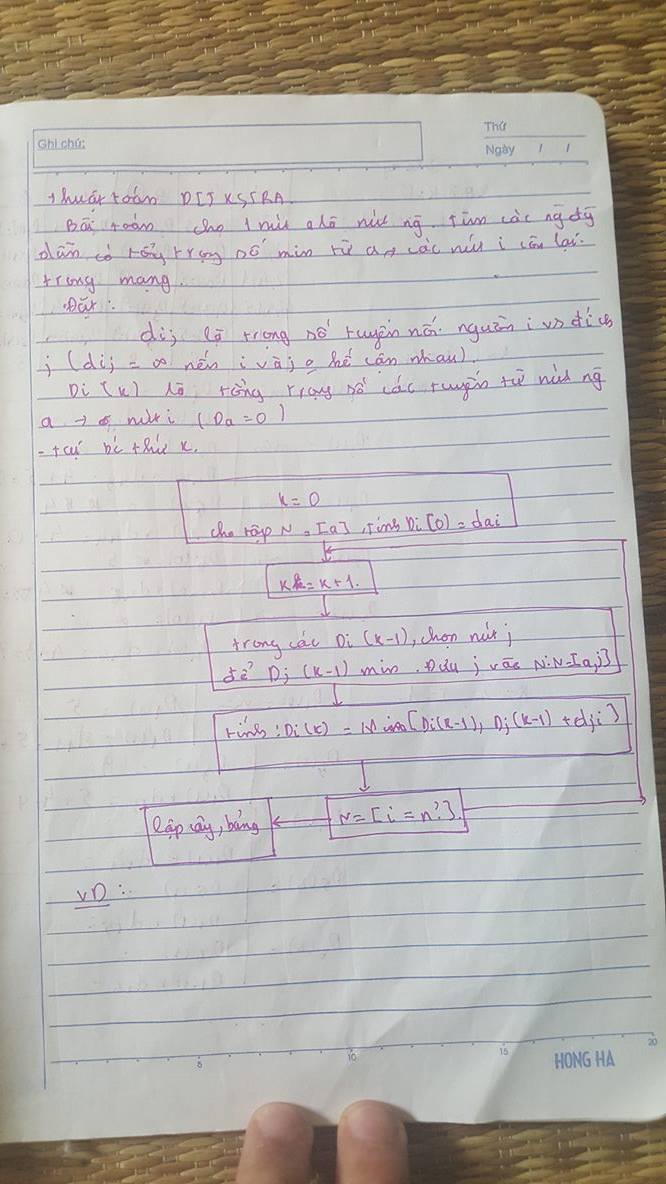 Ghi chú:
Thứ
Ngày / /
thuật toán DIJKSTRA.
Bài toán cho 1 nút a là nút ng. tìm các ng đg
dẫn có tổng trọng số min từ a → các nút i còn lại.
trong mạng.
Đặt:
dij là trọng số tuyến nối nguồn i và đích
j (dij = ∞ nếu i và j o kề cận nhau).
Di (k) là tổng trọng số các tuyến từ nút ng
a → nút i (Da = 0)
- tại bc thứ k.
k = 0
cho tập N = [a], tính Di[0] = dai
k = k + 1.
trong các Di (k-1), chọn nút j
để Dj (k-1) min. Đưa j vào N: N=[a,j]
tính: Di(k) = Min[Di(k-1), Dj(k-1) + dji]
lập cây, bảng
N = [i = n?].
VD:
5
10
15
20
HONG HA